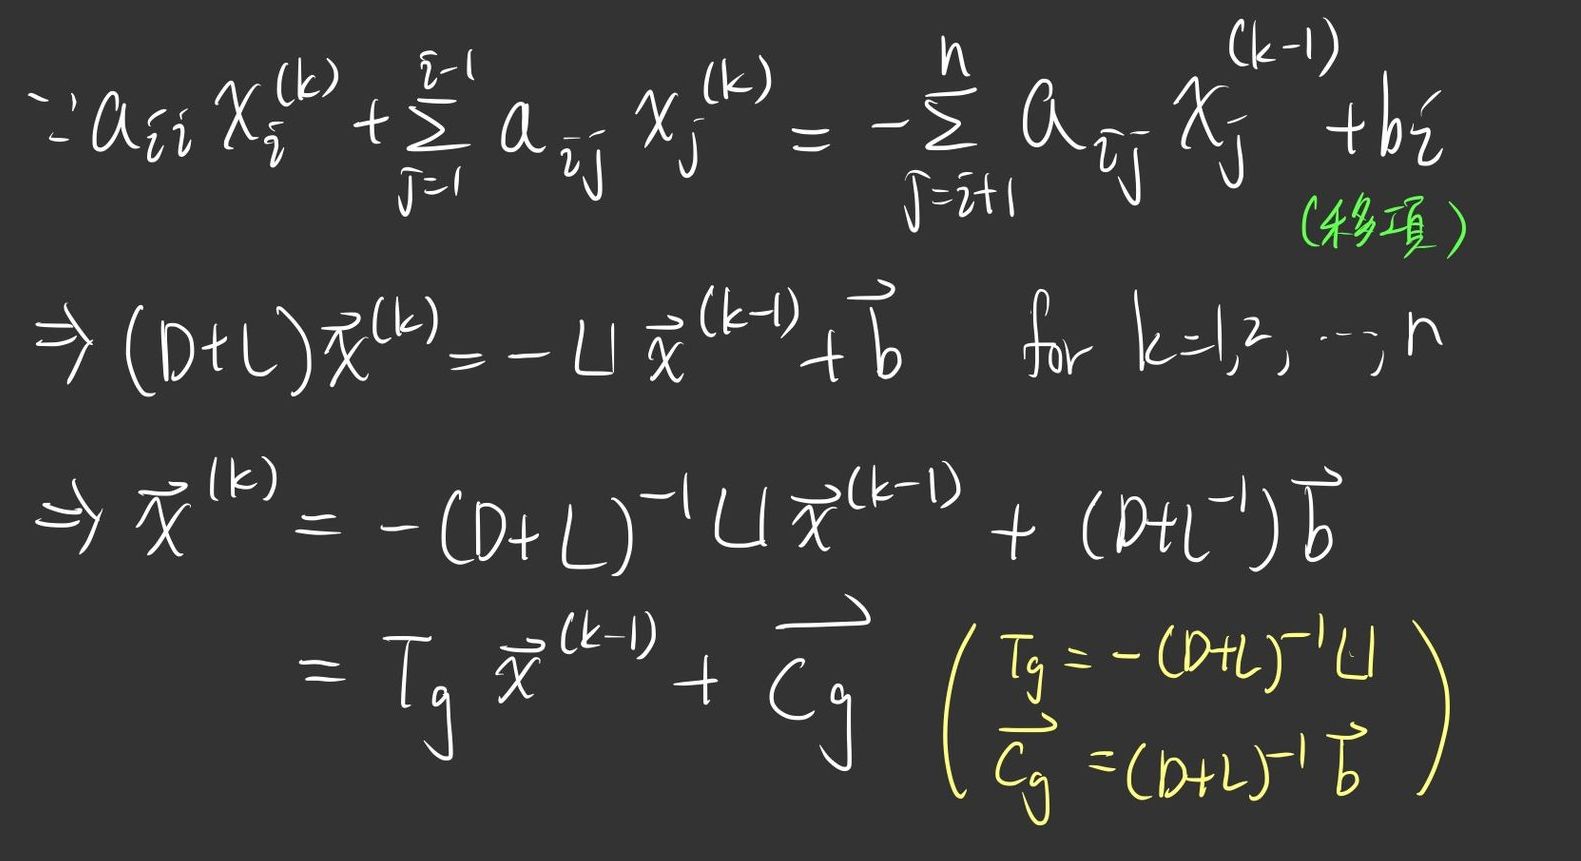 ∵ a_{ii} x_i^{(k)} + \sum_{j=1}^{i-1} a_{ij} x_j^{(k)} = -\sum_{j=i+1}^{n} a_{ij} x_j^{(k-1)} + b_i
(移項)
⇒ (D+L)\vec{x}^{(k)} = -U\vec{x}^{(k-1)} + \vec{b} for k=1,2,…,n
⇒ \vec{x}^{(k)} = -(D+L)^{-1}U\vec{x}^{(k-1)} + (D+L^{-1})\vec{b}
= T_g \vec{x}^{(k-1)} + \vec{C_g}
(T_g = -(D+L)^{-1}U
\vec{C_g} = (D+L)^{-1}\vec{b})